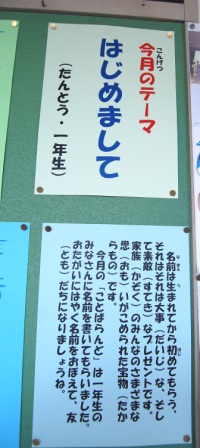 今月のテーマ
こんげつ
はじめまして
(たんとう・一年生)
名前は生まれてから初めてもらう、
それはそれは大事(だいじ)な、そし
て素敵(すてき)なプレゼントです。
家族(かぞく)のみんなのさまざまな
思(おも)いがこめられた宝物(たか
らもの)です。
今月の「ことばらんど」は一年生の
みなさんに名前を書いてもらいました。
おたがいにはやく名前をおぼえて、友
(とも)だちになりましょうね。